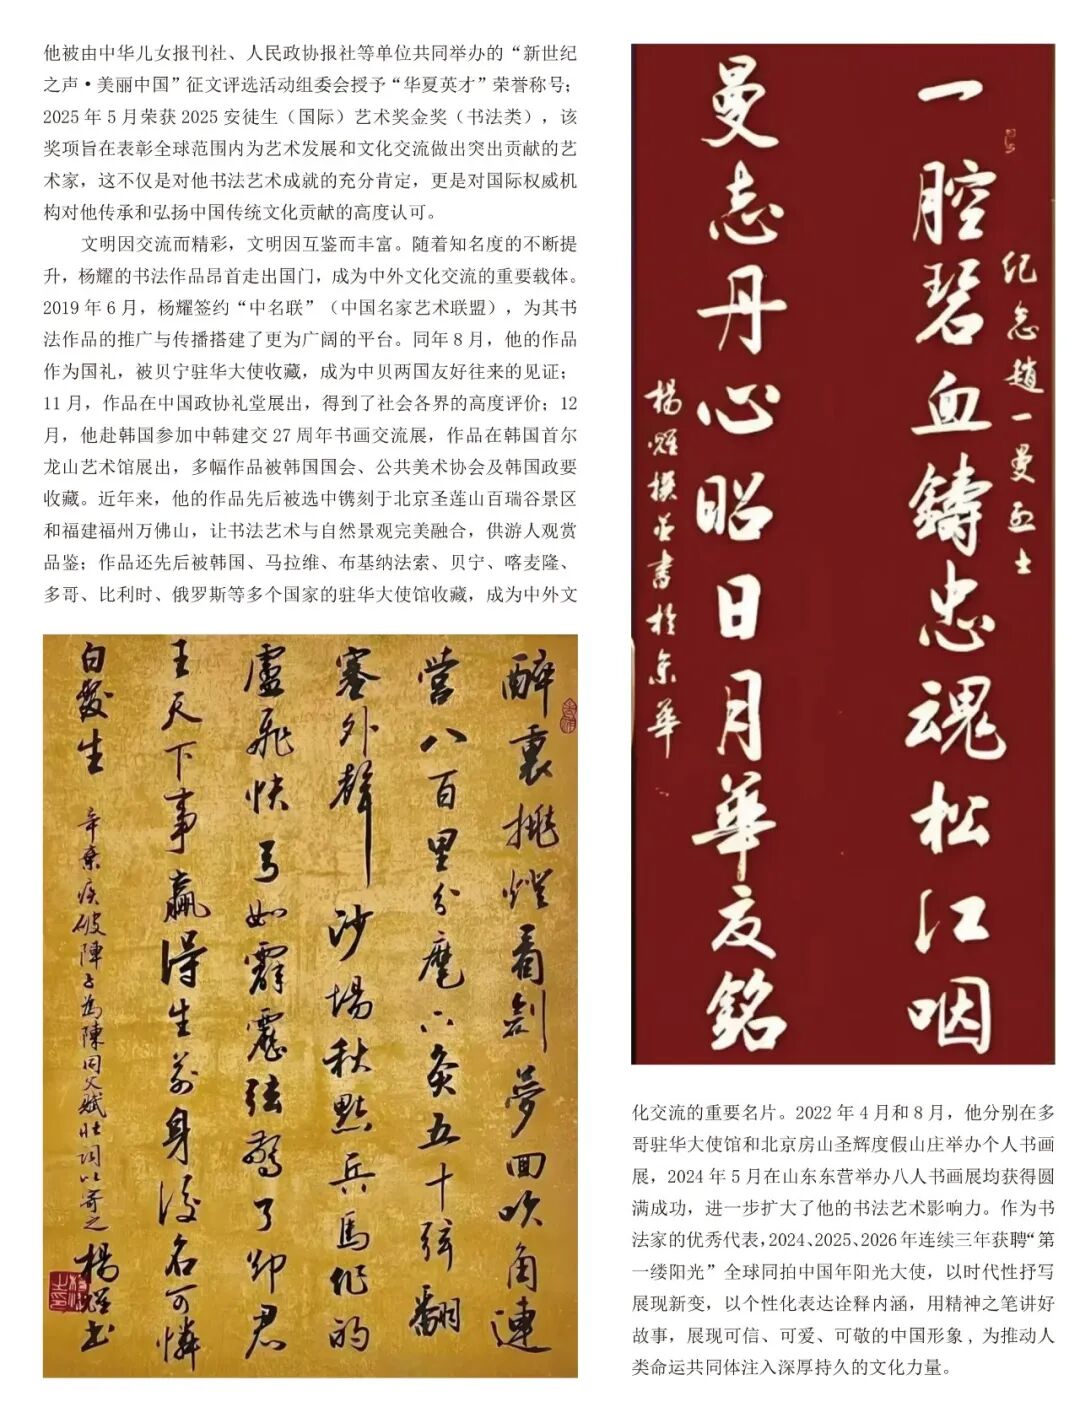 他被由中华儿女报刊社、人民政协报社等单位共同举办的“新世纪
之声·美丽中国”征文评选活动组委会授予“华夏英才”荣誉称号；
2025 年 5 月荣获 2025 安徒生（国际）艺术奖金奖（书法类），该
奖项旨在表彰全球范围内为艺术发展和文化交流做出突出贡献的艺
术家，这不仅是对他书法艺术成就的充分肯定，更是对国际权威机
构对他传承和弘扬中国传统文化贡献的高度认可。
文明因交流而精彩，文明因互鉴而丰富。随着知名度的不断提
升，杨耀的书法作品昂首走出国门，成为中外文化交流的重要载体。
2019 年 6 月，杨耀签约“中名联”（中国名家艺术联盟），为其书
法作品的推广与传播搭建了更为广阔的平台。同年 8 月，他的作品
作为国礼，被贝宁驻华大使收藏，成为中贝两国友好往来的见证；
11 月，作品在中国政协礼堂展出，得到了社会各界的高度评价；12
月，他赴韩国参加中韩建交 27 周年书画交流展，作品在韩国首尔
龙山艺术馆展出，多幅作品被韩国国会、公共美术协会及韩国政要
收藏。近年来，他的作品先后被选中镌刻于北京圣莲山百瑞谷景区
和福建福州万佛山，让书法艺术与自然景观完美融合，供游人观赏
品鉴；作品还先后被韩国、马拉维、布基纳法索、贝宁、喀麦隆、
多哥、比利时、俄罗斯等多个国家的驻华大使馆收藏，成为中外文
醉裏挑燈看劍夢回吹角連
營八百里分麾下炙五十弦翻
塞外聲沙場秋點兵馬作的
盧飛快弓如霹靂弦驚了卻君
王天下事贏得生前身後名可憐
白發生
辛棄疾破陣子為陳同父賦壯詞以寄之
楊耀書
紀念趙一曼烈士
一腔碧血鑄忠魂松江咽
曼志丹心昭日月華夏銘
楊耀撰並書於京華
化交流的重要名片。2022 年 4 月和 8 月，他分别在多
哥驻华大使馆和北京房山圣辉度假山庄举办个人书画
展，2024 年 5 月在山东东营举办八人书画展均获得圆
满成功，进一步扩大了他的书法艺术影响力。作为书
法家的优秀代表，2024、2025、2026 年连续三年获聘“第
一缕阳光”全球同拍中国年阳光大使，以时代性抒写
展现新变，以个性化表达诠释内涵，用精神之笔讲好
故事，展现可信、可爱、可敬的中国形象，为推动人
类命运共同体注入深厚持久的文化力量。